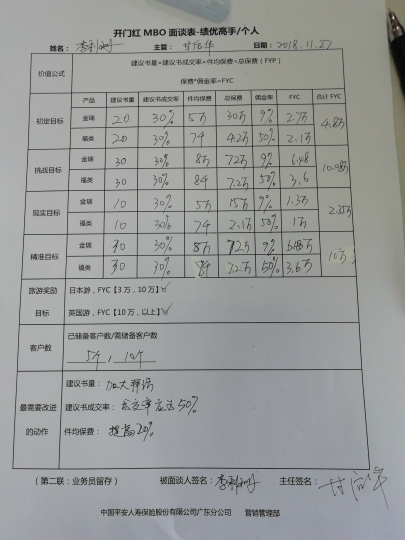 开门红 MBO 面谈表-绩优高手/个人
姓名: 主管: 日期: 2018.11.27
价值公式
建议书量×建议书成交率×件均保费=总保费(FYP)
保费*佣金率=FYC
产品 建议书量 建议书成交率 件均保费 总保费 佣金率 FYC 合计 FYC
初定目标 金瑞 20 30% 5万 30万 9% 2.7万 4.8万
福类 20 30% 7千 4.2万 50% 2.1万
挑战目标 金瑞 30 30% 8万 72万 9% 6.48 10.08万
福类 30 30% 8千 7.2万 50% 3.6
现实目标 金瑞 10 30% 5万 15万 9% 1.3万 2.35万
福类 10 30% 7千 2.1万 50% 1万
精准目标 金瑞 30 30% 8万 72万 9% 6.48万 10万
福类 30 30% 8千 7.2万 50% 3.6万
旅游奖励 日本游,FYC【3 万,10 万】✓
目标 英国游,FYC【10 万,以上】✓
客户数
已储备客户数/需储备客户数
5个, 10个
最需要改进的动作
建议书量: 加大拜访
建议书成交率: 成交率应达50%
件均保费: 提高20%
(第二联:业务员留存) 被面谈人签名: 主任签名:
中国平安人寿保险股份有限公司广东分公司 营销管理部